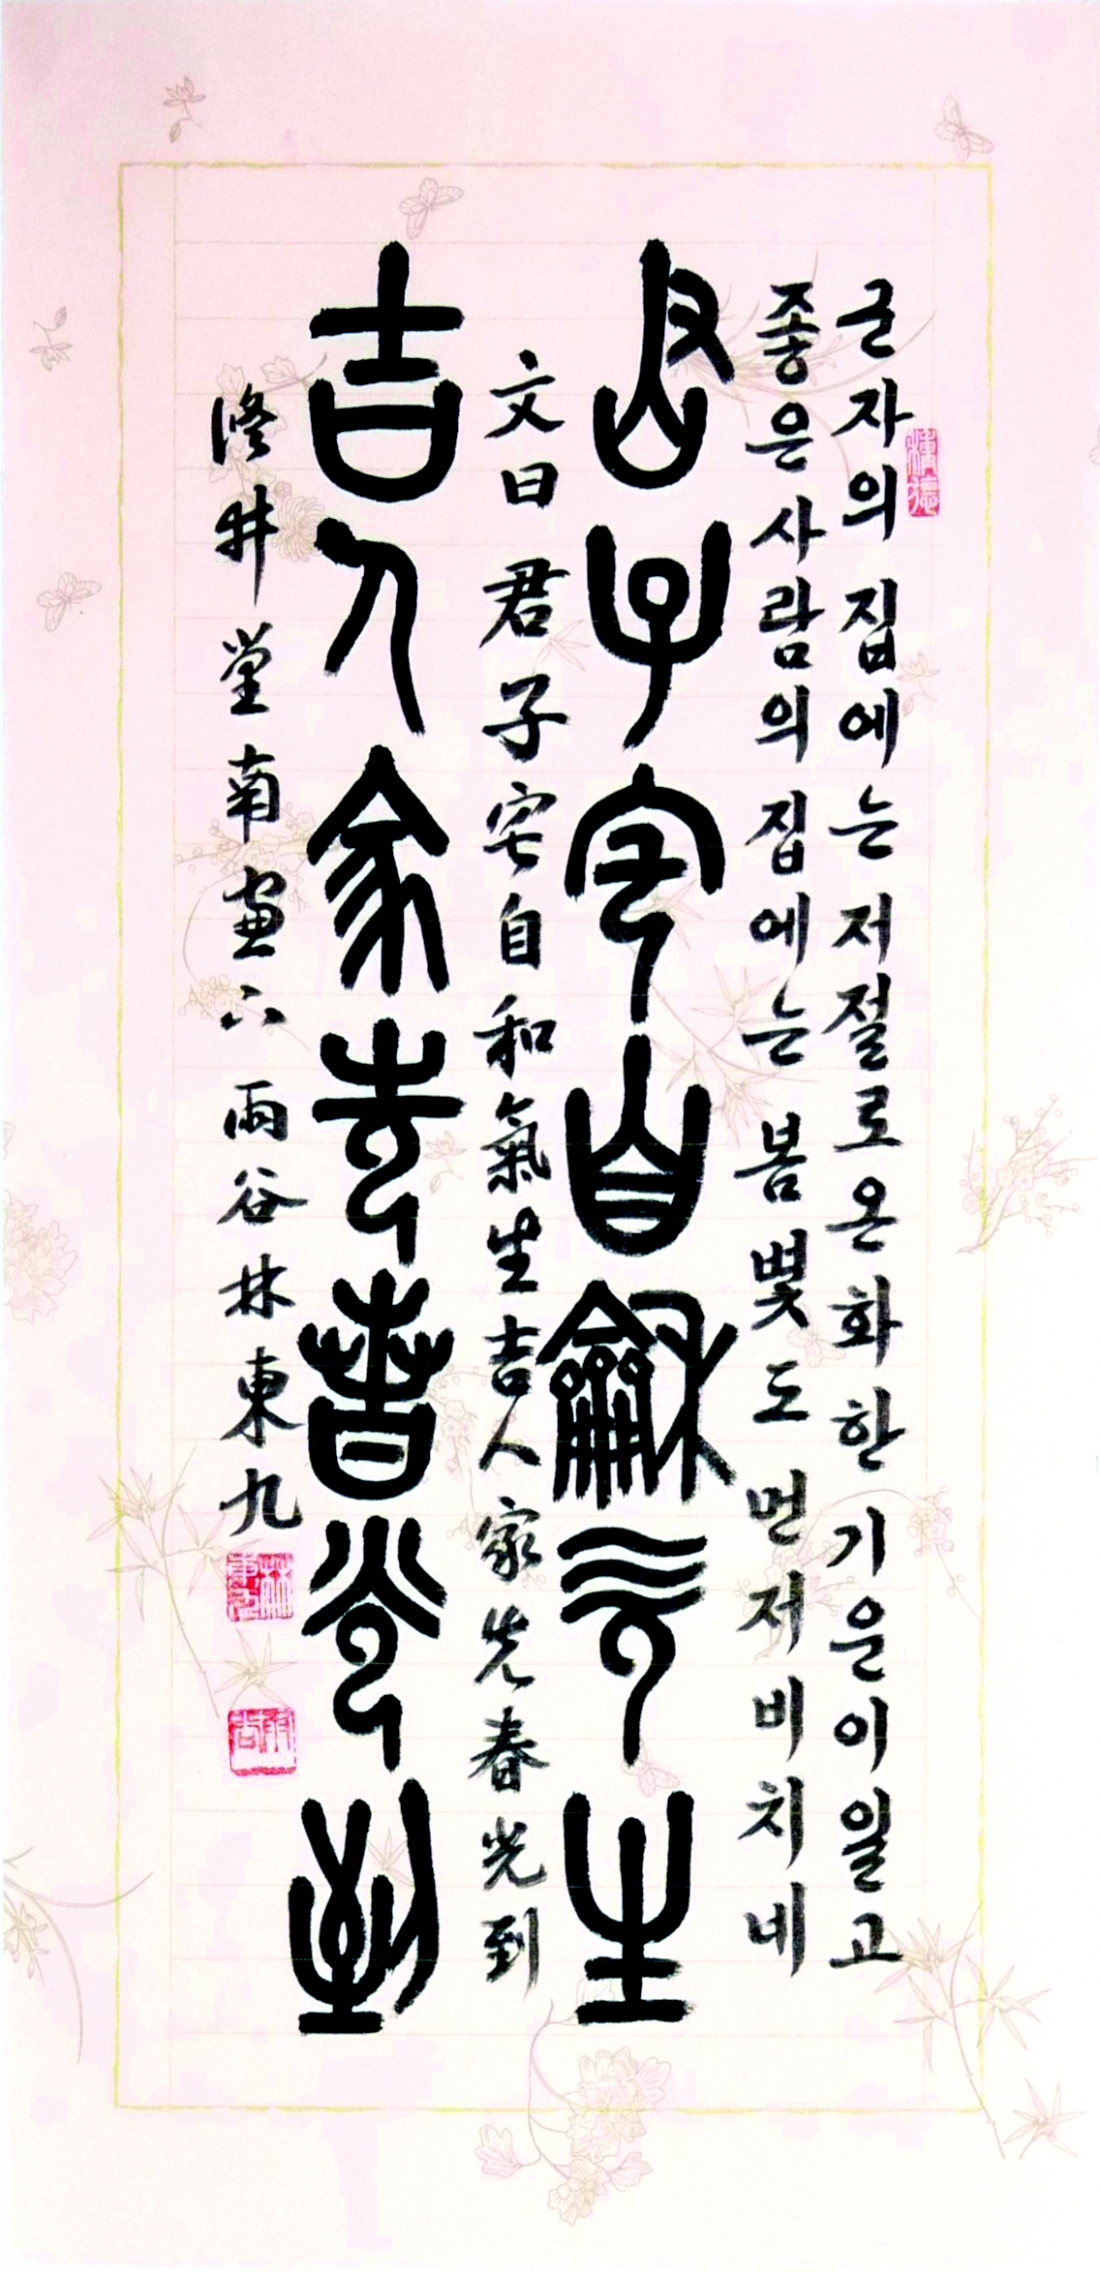 군자의 집에는 저절로 온화한 기운이 일고
좋은 사람의 집에는 봄볕도 먼저 비치네
君子宅自龢气生
文曰 君子宅自和氣生吉人家先春光到
吉人家先春光到
修井堂南窓下 雨谷林東九
雨谷